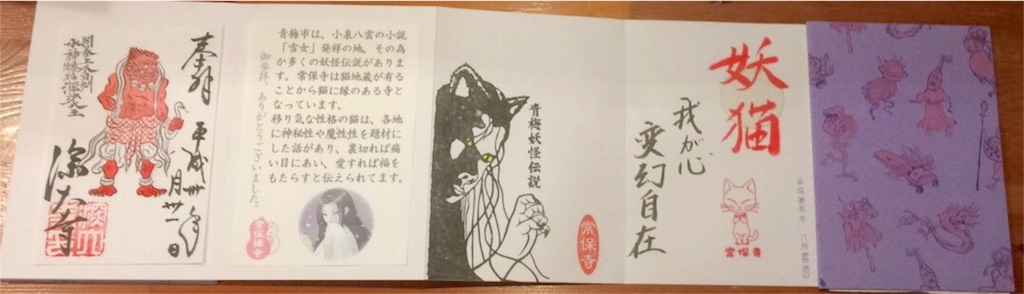 妖猫
我が心
変幻自在
常保寺
青梅妖怪伝説
常保寺
青梅市は、小泉八雲の小説
「雪女」発祥の地、その為
か多くの妖怪伝説がありま
す。常保寺は猫地蔵が有る
ことから猫に縁のある寺と
なっています。
移り気な性格の猫は、各地
に神秘性や魔性性を題材に
した話があり、裏切れば痛
い目にあい、愛すれば福を
もたらすと伝えられてます。
御参拝、ありがとうございました。
常保禅寺
奉拝
平成卅年
月卅一日
深大寺